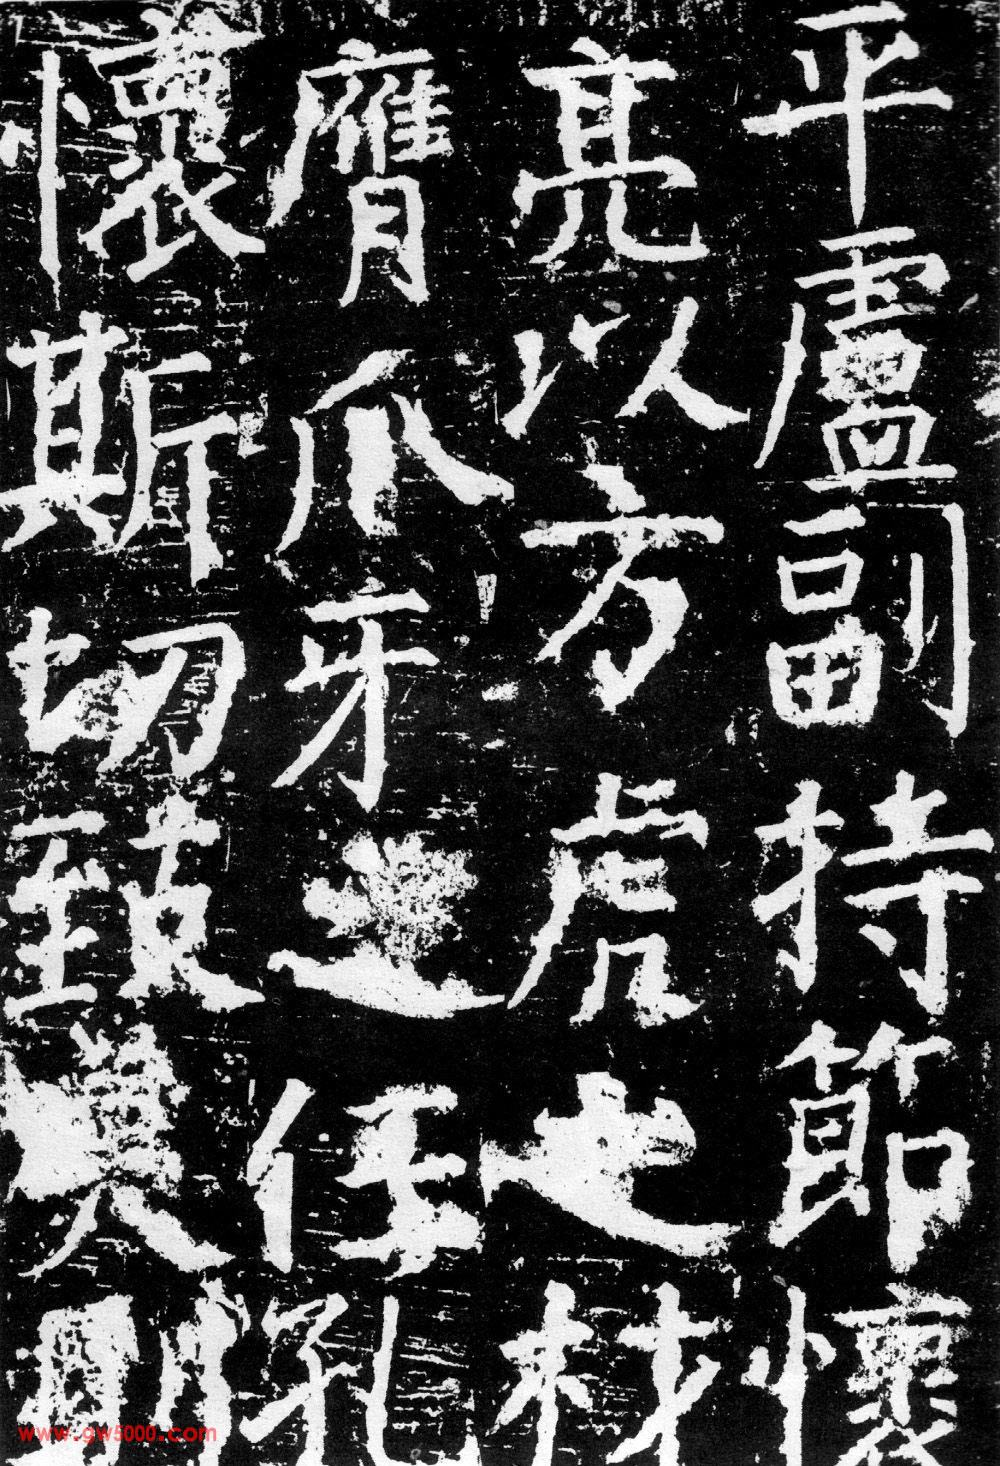 平盧副持節懷
亮以方虎之材
膺爪牙之任孔
懷斯切致美則
www.gw5000.com